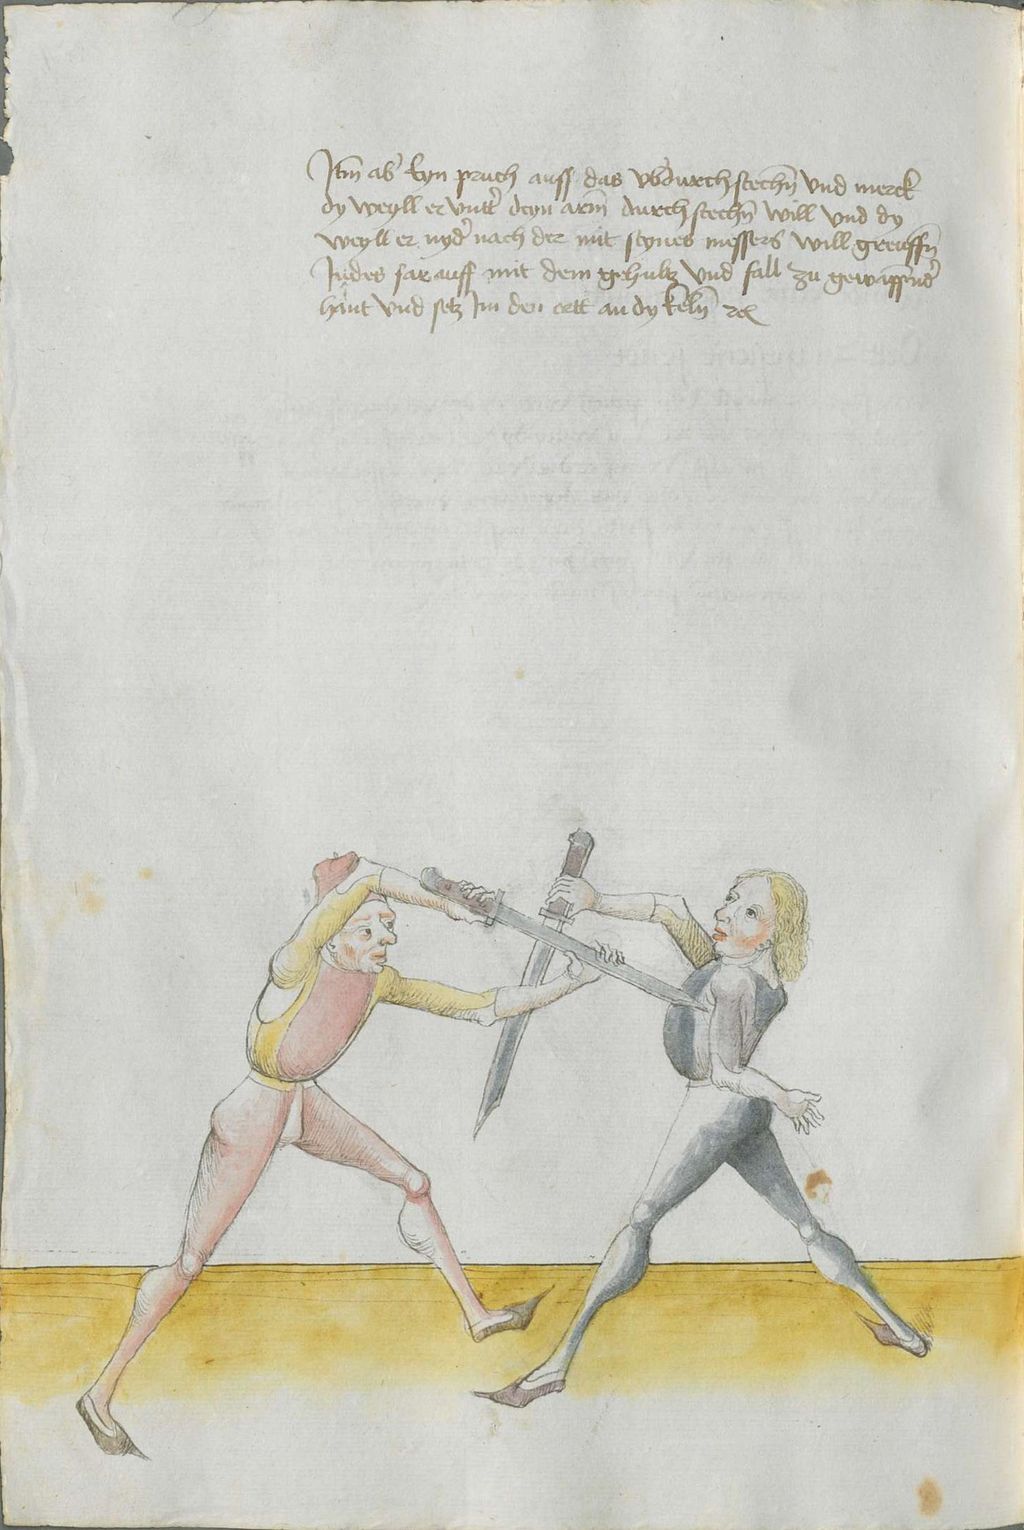 Itm ab' eyn pruch auff das vberdurchstechn̄ vnd merck
dy weyll er vntt' deyn arm̄ durchstechn̄ will vnd dy
weyll er nyd' nach der mit seynes messers will greuffn̄
Indes far auff mit dem gehultz vnd fall zu gewappend'
hant vnd setz Im den ortt an dy keln̄